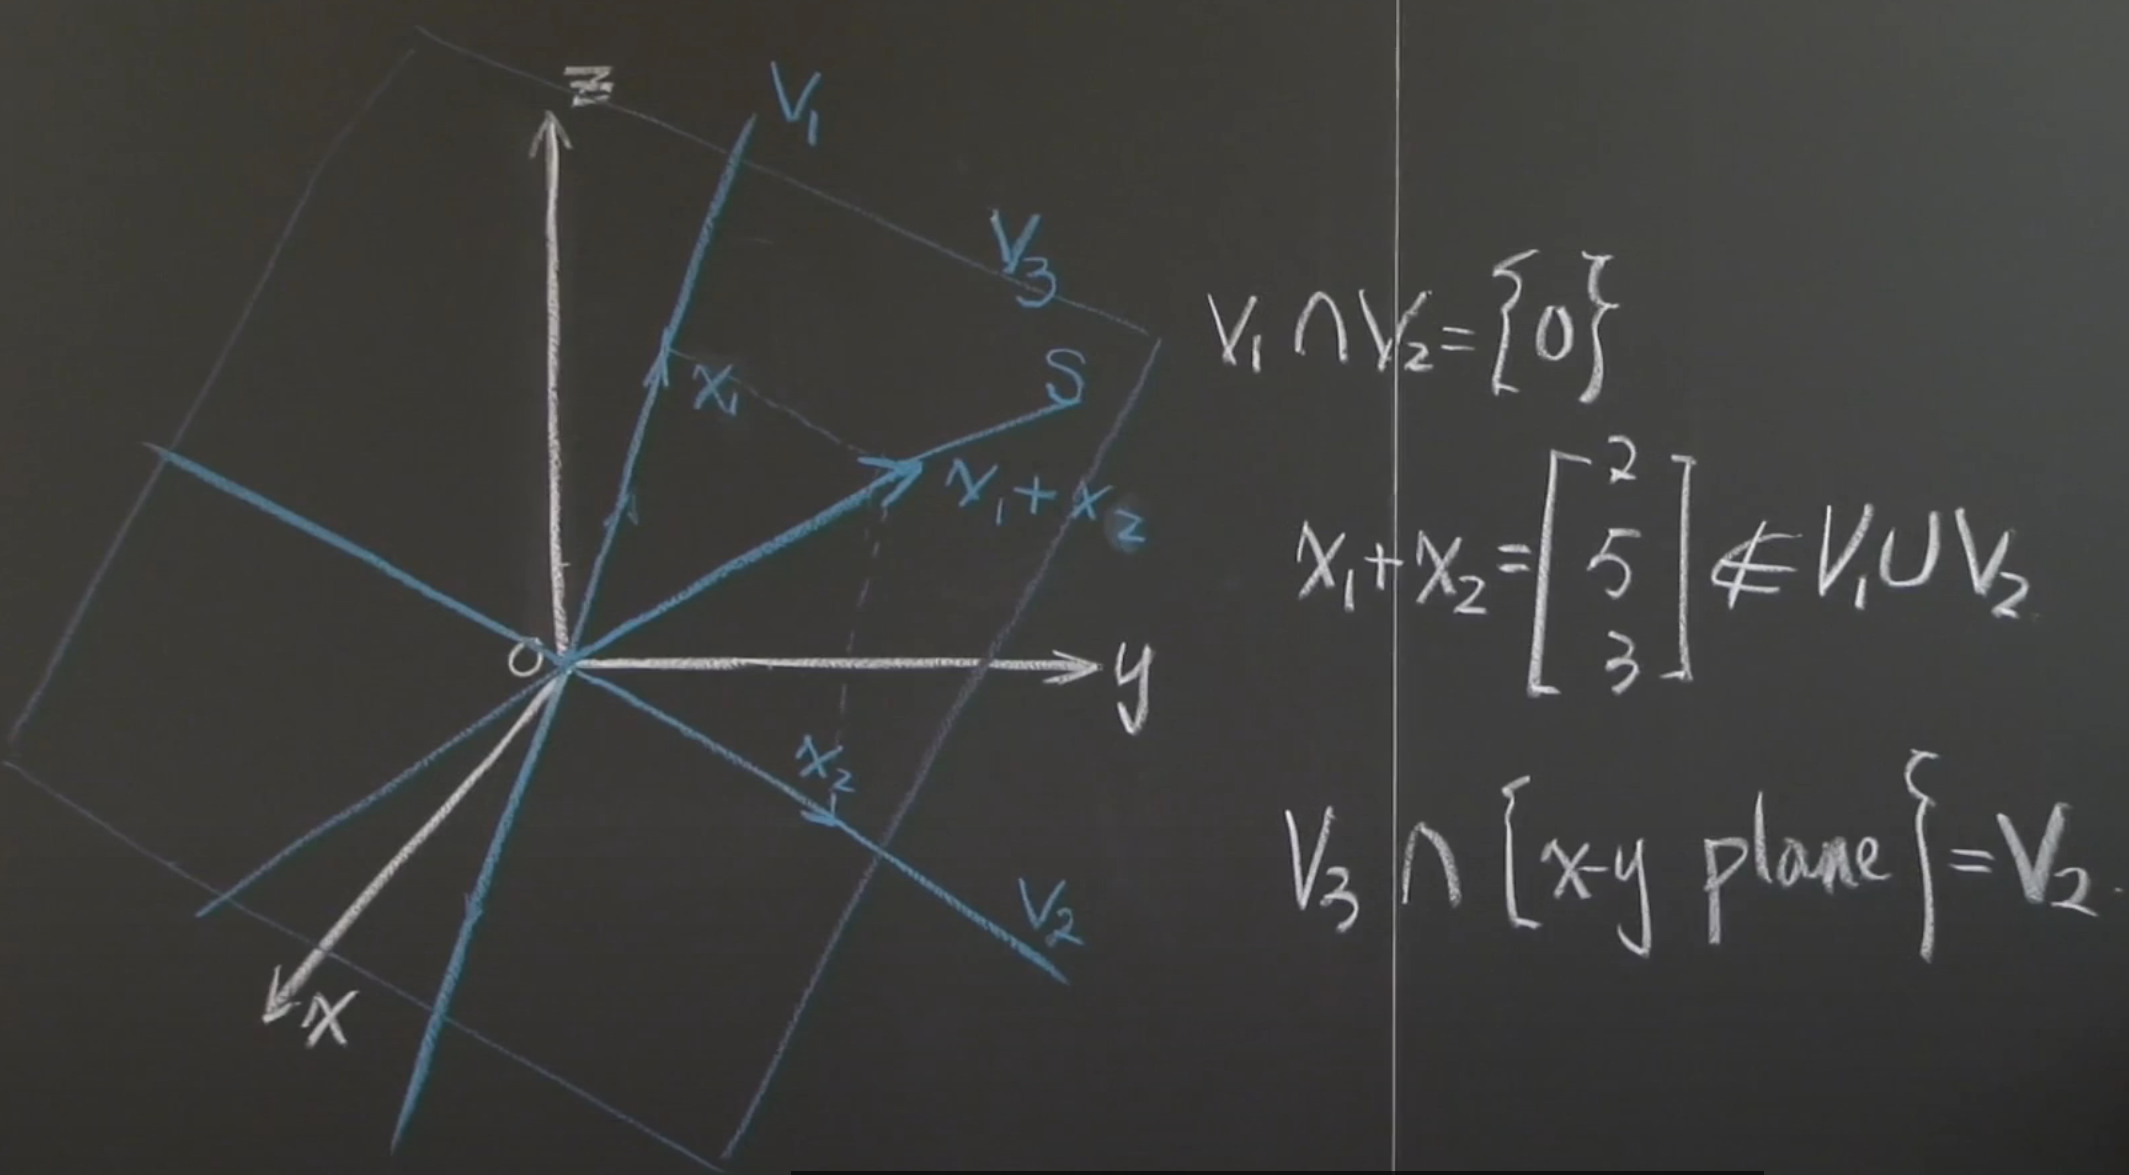 z
V₁
V₃
S
x₁
x₁ + x₂
0
y
x₂
V₂
x
V₁ ∩ V₂ = {0}
x₁ + x₂ = [2 5 3] ∉ V₁ ∪ V₂
V₃ ∩ {x-y plane} = V₂.